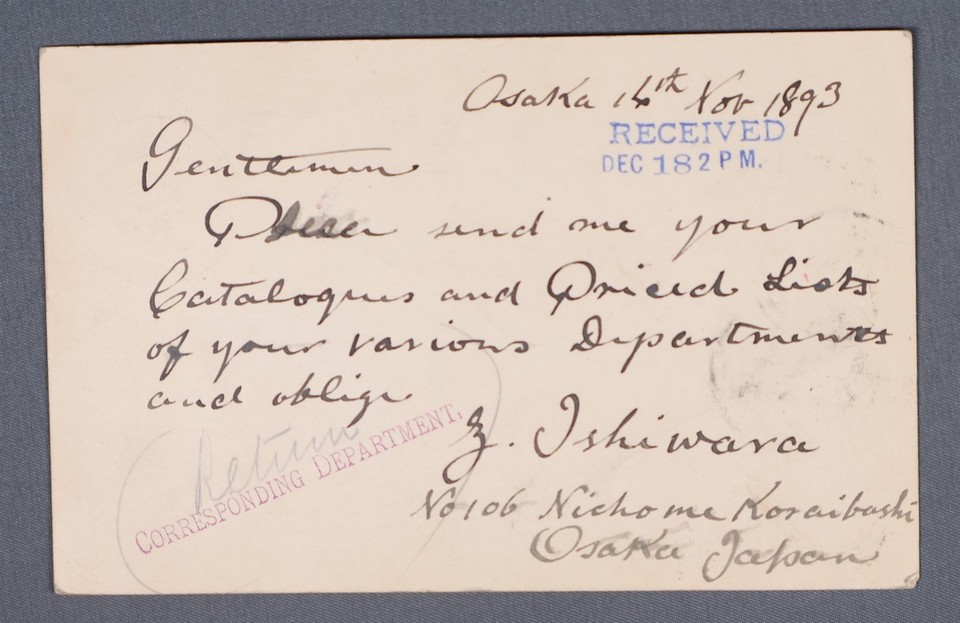 Osaka 16th Nov 1893
RECEIVED
DEC 18 2 PM.
Gentlemen
Please send me your
Catalogues and Priced Lists
of your various Departments
and oblige
Return
CORRESPONDING DEPARTMENT.
Z. Ishiwara
No 106 Nichome Koraibashi
Osaka Japan